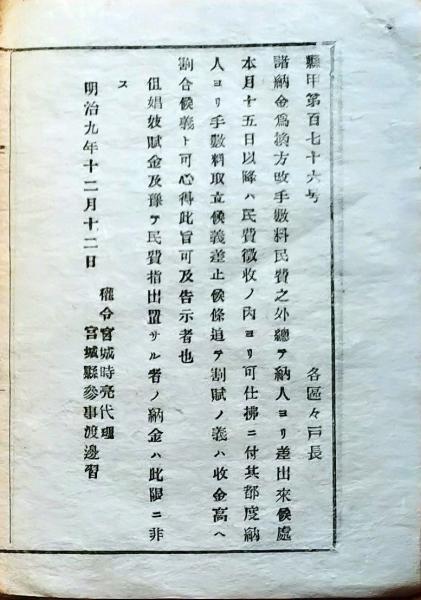 縣甲第百七十六号
各區々戸長
諸納金爲換方改手數料民費之外總テ納人ヨリ差出來候處
本月十五日以降ハ民費徴收ノ内ヨリ可仕拂ニ付其都度納
人ヨリ手數料取立候義差止候條追テ割賦ノ義ハ收金高ヘ
割合候義ト可心得此旨可及告示者也
但娼妓賦金及豫テ民費指出置サル者ノ納金ハ此限ニ非
ス
明治九年十二月十二日
權令宮城時亮代理
宮城縣參事渡邊習